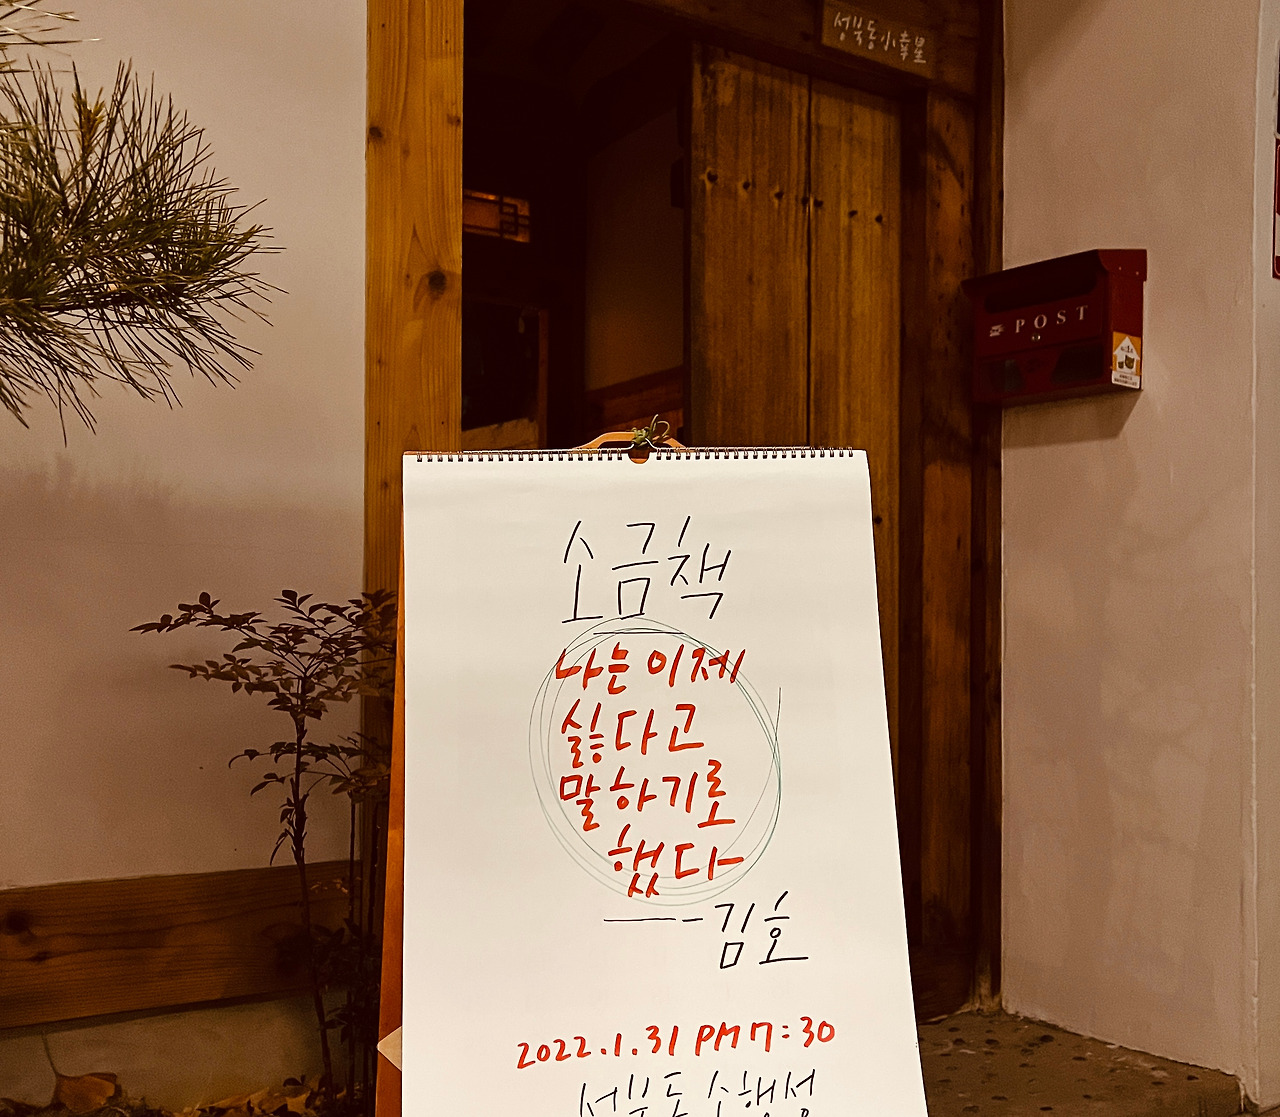 성북동小幸星
POST
소금책
나는 이제
싫다고
말하기로
했다
김호
2022.1.31 PM 7:30
성북동 소행성